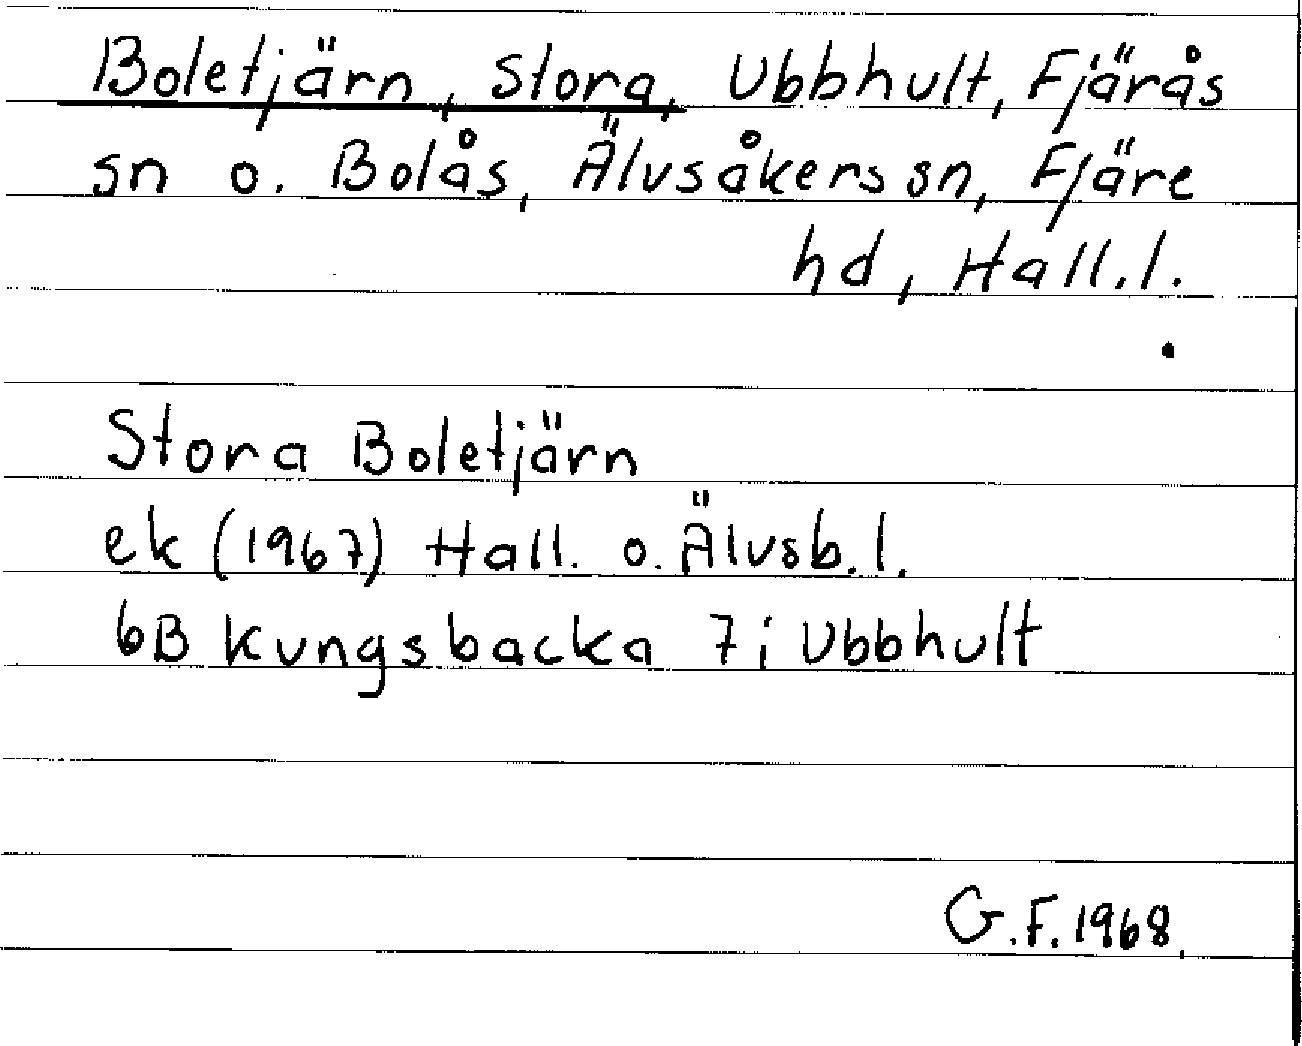 Boletjärn, Stora, Ubbhult, Fjärås
sn o. Bolås, Älvsåkers sn, Fjäre
hd, Hall.l.
Stora Boletjärn
ek (1967) Hall. o. Älvsb.l.
6B Kungsbacka 7i Ubbhult
G.F. 1968.